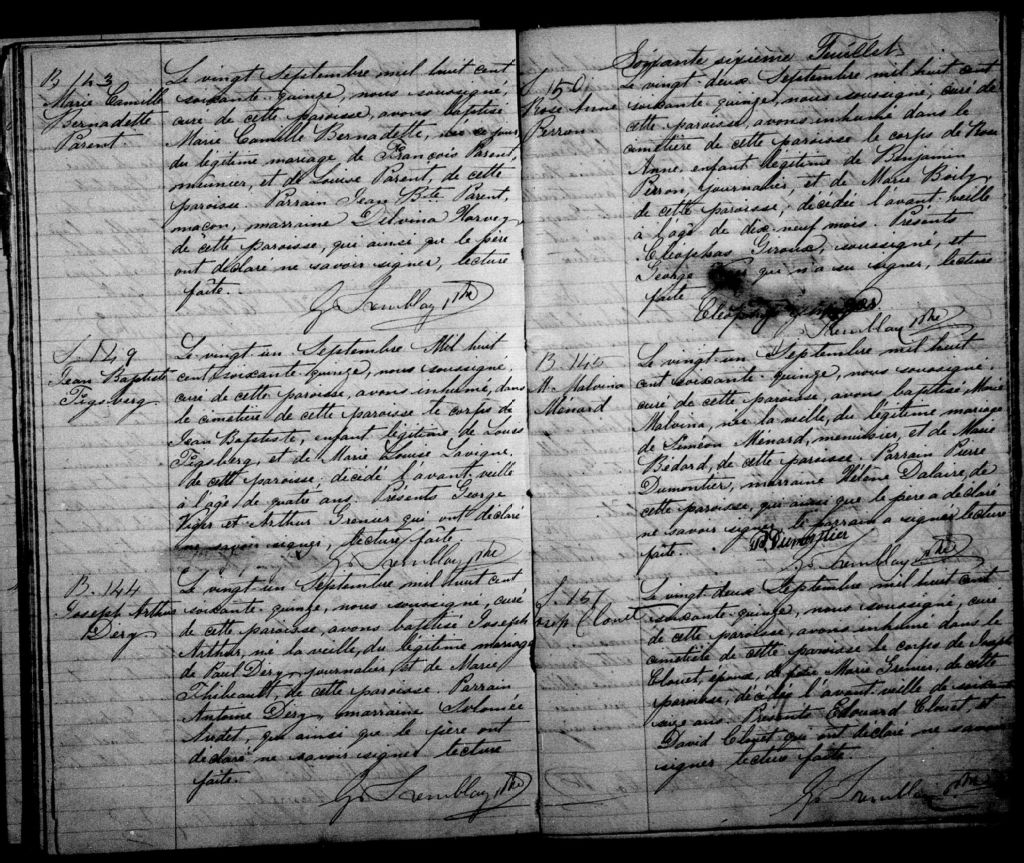 B. 143
Marie Camille
Bernadette
Parent.
Le vingt Septembre mil huit cent
soixante quinze, nous soussigné,
curé de cette paroisse, avons baptisé
Marie Camille Bernadette, née ce jour,
du légitime mariage de François Parent,
meunier, et de Louise Parent, de cette
paroisse. Parrain Jean Bte Parent,
maçon, marraine Delvina Harvey,
de cette paroisse, qui ainsi que le père
ont déclaré ne savoir signer, lecture
faite.
G. Tremblay Ptre
S. 149
Jean Baptiste
Pegsberg
Le vingt un Septembre Mil huit
cent soixante quinze, nous soussigné,
curé de cette paroisse, avons inhumé, dans
le cimetière de cette paroisse le corps de
Jean Baptiste, enfant légitime de Louis
Pegsberg, et de Marie Louise Lavigne,
de cette paroisse, décédé l'avant veille
à l'age de quatre ans. Présents George
Viger et Arthur Grenier qui ont déclaré
ne savoir signer, lecture faite.
G. Tremblay Ptre
B. 144
Joseph Arthur
Déry
Le vingt un Septembre mil huit cent
soixante quinze, nous soussigné, curé
de cette paroisse, avons baptisé Joseph
Arthur, né la veille, du légitime mariage
de Paul Déry, journalier, et de Marie
Thibeault, de cette paroisse. Parrain
Antoine Déry, marraine Solomée
Audet, qui ainsi que le père ont
déclaré ne savoir signer lecture
faite.
G. Tremblay Ptre
Soixante sixième Feuillet
S. 150
Rose Anne
Perron
Le vingt deux Septembre mil huit cent
soixante quinze, nous soussigné, curé de
cette paroisse, avons inhumé dans le
cimetière de cette paroisse le corps de Rose
Anne, enfant légitime de Benjamin
Perron, journalier, et de Marie Boily
de cette paroisse, décédée l'avant veille
à l'age de dix neuf mois. Présents
Cléophas Giroux, soussigné, et
George qui n'a su signer, lecture
faite
G. Tremblay Ptre
B. 145
M. Malvina
Ménard
Le vingt un Septembre mil huit
cent soixante quinze, nous soussigné,
curé de cette paroisse, avons baptisé Marie
Malvina, née la veille, du légitime mariage
de Siméon Ménard, menuisier, et de Marie
Bédard, de cette paroisse. Parrain Pierre
Dumontier, marraine Hélène Dalaire de
cette paroisse, qui ainsi que le père a déclaré
ne savoir signer, le parrain a signé lecture
faite. P Dumontier
G. Tremblay Ptre
S. 151
Josep Clouet
Le vingt deux Septembre mil huit cent
soixante quinze, nous soussigné, curé
de cette paroisse, avons inhumé dans le
cimetière de cette paroisse le corps de Joseph
Clouet, époux de feue Marie Grenier, de cette
paroisse, décédé l'avant veille de soixante
seize ans. Présents Edouard Clouet, et
David Clouet qui ont déclaré ne savoir
signer lecture faite.
G. Tremblay Ptre